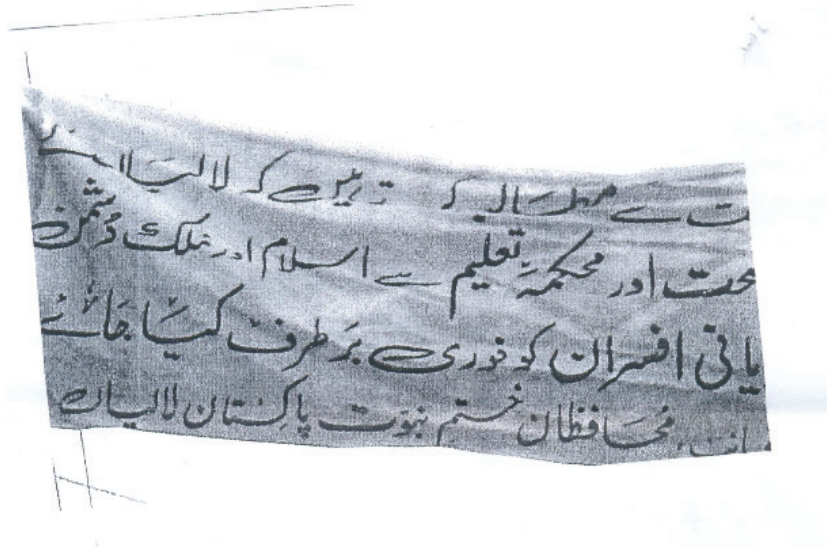 ت سے مطالبہ کرتے ہیں کہ لالیاں
حت اور محکمہ تعلیم سے اسلام اور ملک دشمن
یانی افسران کو فوری برطرف کیا جائے
محافظان ختم نبوت پاکستان لالیاں